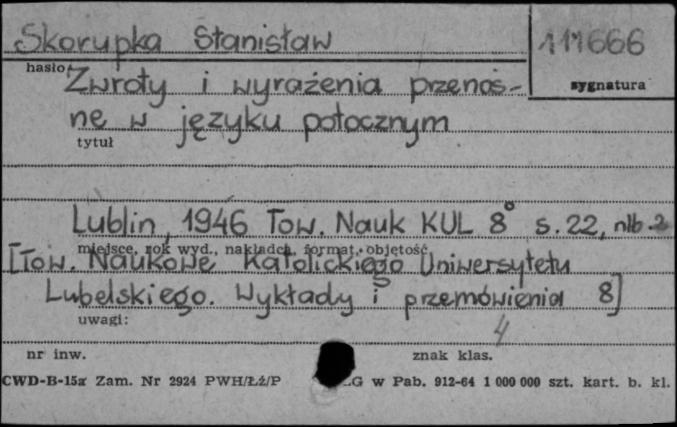 Skorupka Stanisław 111666
hasło sygnatura
Zwroty i wyrażenia przenoś-
ne w języku potocznym
tytuł
Lublin, 1946 Tow. Nauk KUL 8° s. 22, nlb. 2
miejsce, rok wyd., nakładca, format, objętość
[Tow. Naukowe Katolickiego Uniwersytetu
Lubelskiego. Wykłady i przemówienia 8]
uwagi:
4
nr inw. znak klas.
CWD-B-15a Zam. Nr 2924 PWH/Łź/P LG w Pab. 912-64 1 000 000 szt. kart. b. kl.